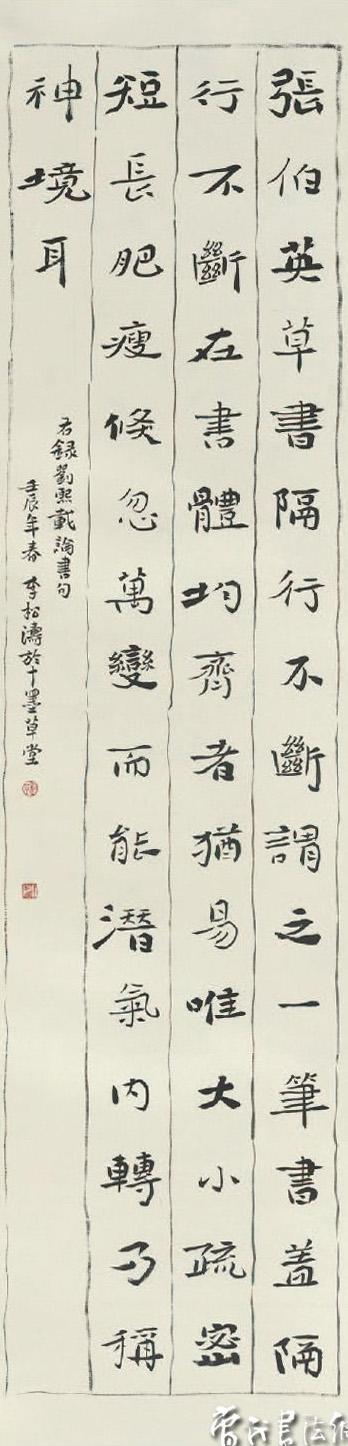 張伯英草書隔行不斷謂之一筆書蓋隔
行不斷在書體均齊者猶易唯大小疏密
短長肥瘦倏忽萬變而能潛氣內轉乃稱
神境耳
右錄劉熙載論書句
壬辰年春李松濤於十墨草堂